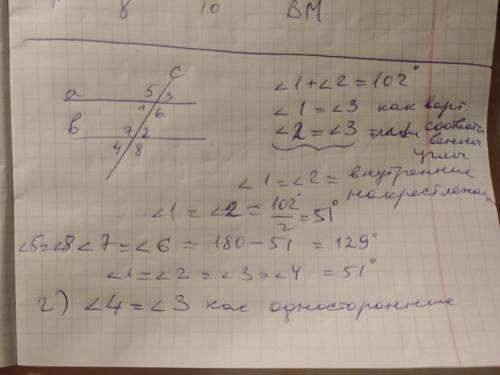 8 10 ВМ
c
a 5 3
1 6
b 7 2
4 8
∠1+∠2=102°
∠1=∠3 как верт.
∠2=∠3 соответственные углы
∠1=∠2= внутренние накрестлежащ
∠1=∠2=102°/2=51°
∠5=∠8 ∠7=∠6=180-51=129°
∠1=∠2=∠3=∠4=51°
2) ∠4=∠3 как односторонние